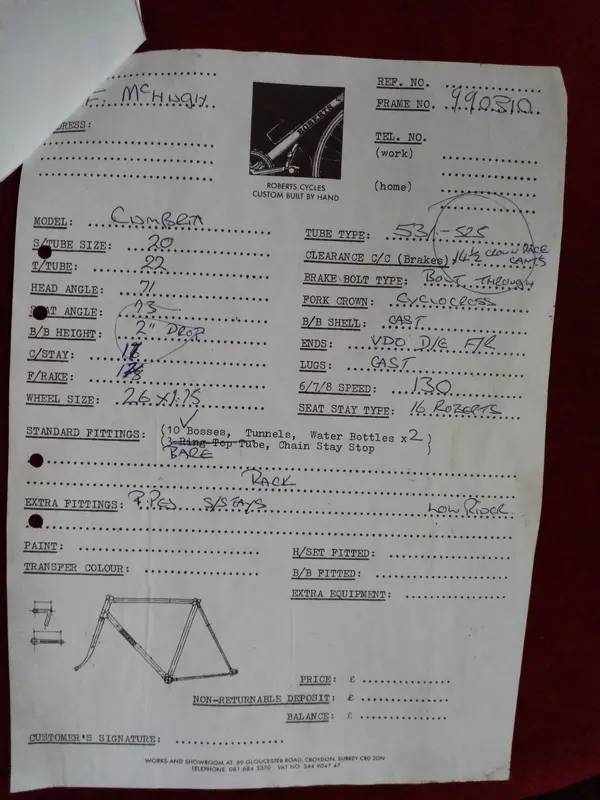 McHugh
REF. NO.
FRAME NO. 990310.
DRESS:
TEL. NO.
(work)
(home)
ROBERTS
ROBERTS CYCLES
CUSTOM BUILT BY HAND
MODEL: CUMBRIA
TUBE TYPE: 531-525
S/TUBE SIZE: 20
CLEARANCE C/C (Brakes) 14½ CROWN RACE CANTS
T/TUBE: 22
BRAKE BOLT TYPE: BOLT THROUGH
HEAD ANGLE: 71
FORK CROWN: CYCLOCROSS
AT ANGLE: 73
B/B SHELL: CAST
B/B HEIGHT: 2" DROP
ENDS: VDO D/E F/R
C/STAY:
LUGS: CAST
F/RAKE:
6/7/8 SPEED: 130
WHEEL SIZE: 26 x 1.75
SEAT STAY TYPE: 16 ROBERTS
STANDARD FITTINGS: (10 Bosses, Tunnels, Water Bottles x2)
(3 Ring Top Tube, Chain Stay Stop)
BARE
RACK
EXTRA FITTINGS: P.Peg S/STAYS LOW RIDER
PAINT:
H/SET FITTED:
TRANSFER COLOUR:
B/B FITTED:
EXTRA EQUIPMENT:
PRICE: £
NON-RETURNABLE DEPOSIT: £
BALANCE: £
CUSTOMER'S SIGNATURE:
WORKS AND SHOWROOM AT 89 GLOUCESTER ROAD, CROYDON, SURREY CR0 2DN
TELEPHONE 081 684 3370 VAT NO 344 9047 47